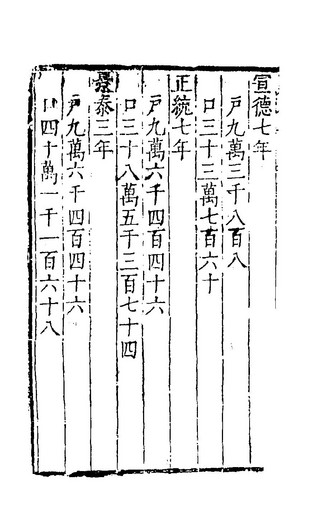 宣德七年
戸九萬三千八百八
口三十三萬七百六十
正統七年
戸九萬六千四百四十六
口三十八萬五千三百七十四
景泰三年
戸九萬六千四百四十六
口四十萬一千一百六十八